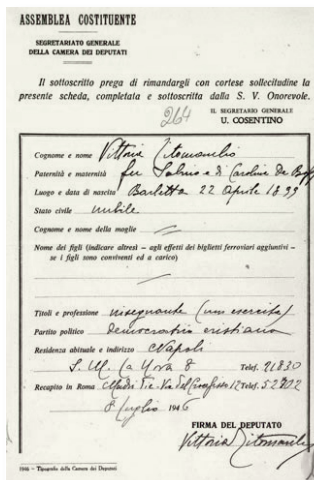 ASSEMBLEA COSTITUENTE
SEGRETARIATO GENERALE
DELLA CAMERA DEI DEPUTATI
Il sottoscritto prega di rimandargli con cortese sollecitudine la
presente scheda, completata e sottoscritta dalla S. V. Onorevole.
264
IL SEGRETARIO GENERALE
U. COSENTINO
Cognome e nome Vittoria Titomanlio
Paternità e maternità fu Sabino e di Carolina De
Luogo e data di nascita Barletta 22 Aprile 1899
Stato civile nubile
Cognome e nome della moglie
Nome dei figli (indicare altresì - agli effetti dei biglietti ferroviari aggiuntivi -
se i figli sono conviventi ed a carico)
Titoli e professione insegnante (non esercita)
Partito politico democratico cristiano
Residenza abituale e indirizzo Napoli
S. M. La Nova 8 Telef. 21830
Recapito in Roma Via del Crocifisso 12 Telef. 52802
8 Luglio 1946
FIRMA DEL DEPUTATO
Vittoria Titomanlio
1946 - Tipografia della Camera dei Deputati